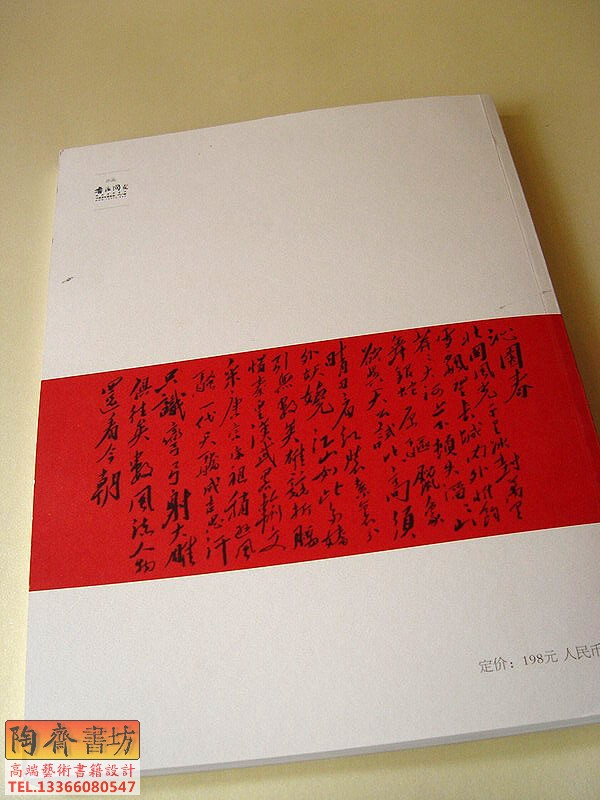 沁園春
北国風光千里冰封萬里
雪飘望長城内外惟餘
莽々大河上下頓失滔々山
舞銀蛇原驰蠟象
欲與天公試比高須
晴日看红裝素裹分
外妖嬈江山如此多嬌
引無數英雄競折腰
惜秦皇漢武略輸文
采唐宗宋祖稍遜風
騷一代天驕成吉思汗
只識彎弓射大雕
俱往矣數風流人物
還看今朝
定价：198元 人民币
陶齋書坊
高端藝術書籍設計
TEL.13366080547